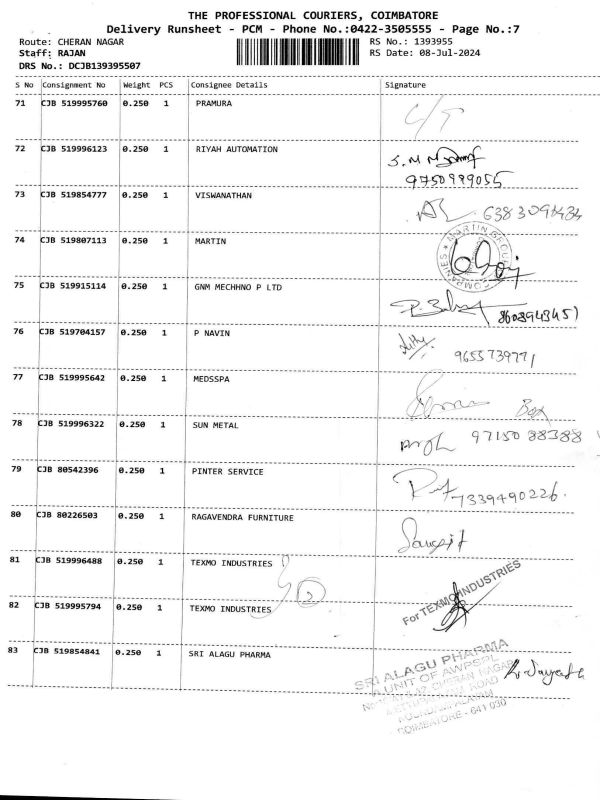 THE PROFESSIONAL COURIERS, COIMBATORE
Delivery Runsheet - PCM - Phone No.:0422-3505555 - Page No.:7
Route: CHERAN NAGAR RS No.: 1393955
Staff: RAJAN RS Date: 08-Jul-2024
DRS No.: DCJB139395507
S No Consignment No Weight PCS Consignee Details Signature
71 CJB 519995760 0.250 1 PRAMURA
72 CJB 519996123 0.250 1 RIYAH AUTOMATION
9750999055
73 CJB 519854777 0.250 1 VISWANATHAN
74 CJB 519807113 0.250 1 MARTIN
MARTIN GROUP COMPANIES
75 CJB 519915114 0.250 1 GNM MECHHNO P LTD
76 CJB 519704157 0.250 1 P NAVIN
9655739771
77 CJB 519995642 0.250 1 MEDSSPA
78 CJB 519996322 0.250 1 SUN METAL
97150 88388
79 CJB 80542396 0.250 1 PINTER SERVICE
7339490226.
80 CJB 80226503 0.250 1 RAGAVENDRA FURNITURE
81 CJB 519996488 0.250 1 TEXMO INDUSTRIES
2
82 CJB 519995794 0.250 1 TEXMO INDUSTRIES
For TEXMO INDUSTRIES
83 CJB 519854841 0.250 1 SRI ALAGU PHARMA
SRI ALAGU PHARMA
A UNIT OF AWPSPL
CHERAN NAGAR
ROAD
COIMBATORE - 641 030